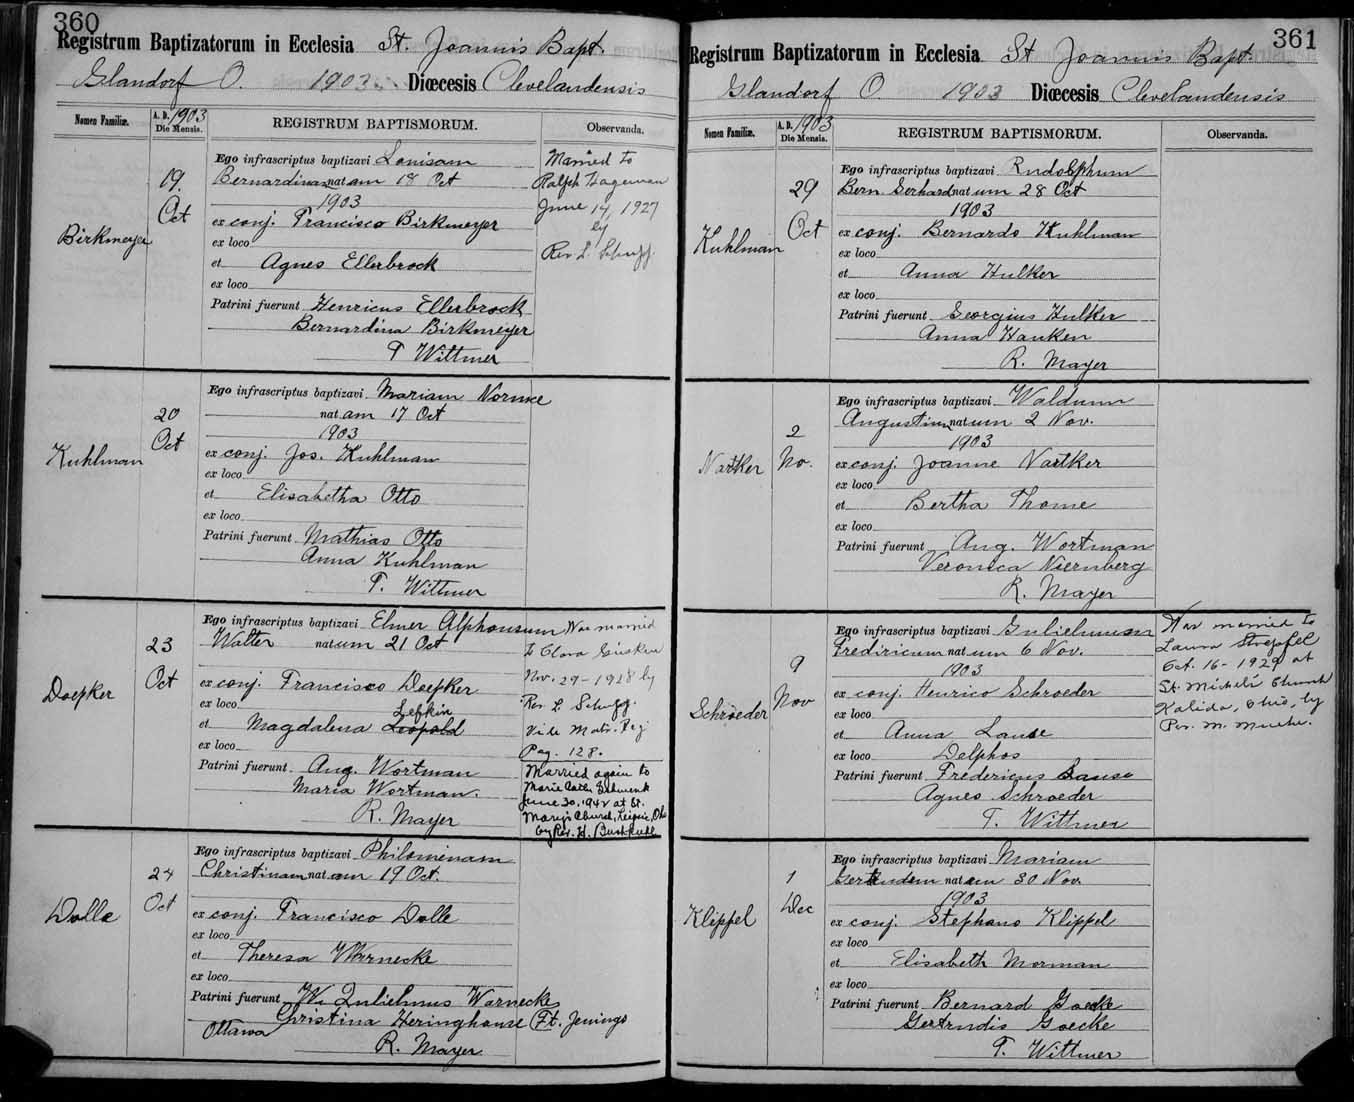 360
Registrum Baptizatorum in Ecclesia St. Joannis Bapt.
Glandorf O. 1903. Diœcesis Clevelandensis
Nomen Familiæ.
A. D. 1903
Die Mensis.
REGISTRUM BAPTISMORUM.
Observanda.
Birkmeyer
19.
Oct
Ego infrascriptus baptizavi Louisam
Bernardinam nat am 18 Oct
1903
ex conj. Francisco Birkmeyer
ex loco
et Agnes Ellerbrock
ex loco
Patrini fuerunt Henricus Ellerbrock
Bernardina Birkmeyer
T Wittmer
Married to
Ralph Hageman
June 14, 1927
by
Rev. L. Schupp.
Kuhlman
20
Oct
Ego infrascriptus baptizavi Mariam
nat am 17 Oct
1903
ex conj. Jos. Kuhlman
ex loco
et Elisabetha Otto
ex loco
Patrini fuerunt Mathias Otto
Anna Kuhlman
T. Wittmer
Doepker
23
Oct
Ego infrascriptus baptizavi Elmer Alphonsum
Walter nat um 21 Oct
ex conj. Francisco Doepker
ex loco Lefkin
et Magdalena Leopold
ex loco
Patrini fuerunt Aug. Wortman
Maria Wortman.
R. Mayer
Was married
to Clara
Nov. 29-1928 by
Rev. L. Schupp.
Vide Matr. Reg
Pag. 128.
Married again to
Marie Cath.
June 30, 1942 at St.
Mary's Church, Leipsic, Ohio
by Rev. H.
Dolle
24
Oct
Ego infrascriptus baptizavi Philomenam
Christinam nat am 19 Oct.
ex conj. Francisco Dolle
ex loco
et Theresa Warnecke
ex loco
Patrini fuerunt W. Gulielmus Warnecke
Christina Heringhouse (Ft. Jenings
Ottawa
R. Mayer
361
Registrum Baptizatorum in Ecclesia St Joannis Bapt.
Glandorf O 1903 Diœcesis Clevelandensis
Nomen Familiæ.
A. D. 1903
Die Mensis.
REGISTRUM BAPTISMORUM.
Observanda.
Kuhlman
29
Oct
Ego infrascriptus baptizavi Rudolphum
Bern. Gerhard nat um 28 Oct
1903
ex conj. Bernardo Kuhlman
ex loco
et Anna Hulker
ex loco
Patrini fuerunt Georgius Hulker
Anna Hanken
R. Mayer
Nartker
2
No.
Ego infrascriptus baptizavi Waldum
Augustinum nat um 2 Nov.
1903
ex conj. Joanne Nartker
ex loco
et Bertha Thome
ex loco
Patrini fuerunt Aug. Wortman
Veronica Niernberg
R. Mayer
Schroeder
9
Nov
Ego infrascriptus baptizavi Gulielmum
Frediricum nat um 6 Nov.
1903
ex conj. Henrico Schroeder
ex loco
et Anna Lause
ex loco Delphos
Patrini fuerunt Fredericus Lause
Agnes Schroeder
T. Wittmer
Was married to
Laura
Oct. 16-1929 at
St. Michels Church
Kalida, Ohio, by
Rev. M.
Klippel
1
Dec
Ego infrascriptus baptizavi Mariam
Gertrudem nat am 30 Nov.
1903
ex conj. Stephano Klippel
ex loco
et Elisabeth Morman
ex loco
Patrini fuerunt Bernard Goecke
Gertrudis Goecke
T. Wittmer